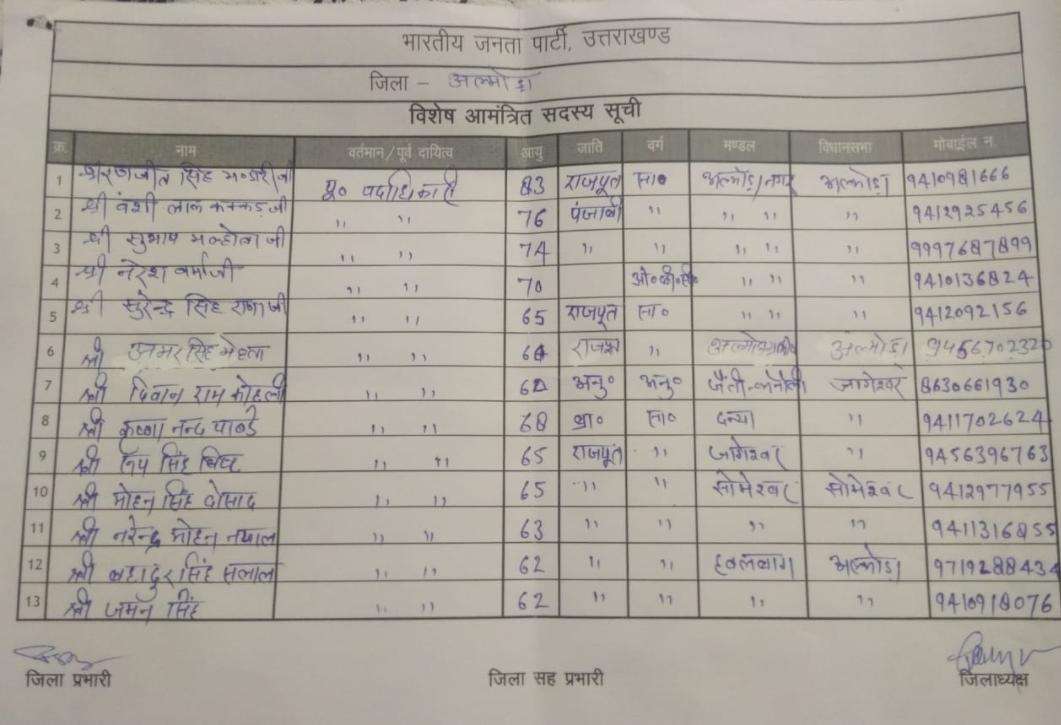 भारतीय जनता पार्टी, उत्तराखण्ड
जिला - अल्मोड़ा
विशेष आमंत्रित सदस्य सूची
क्र. नाम वर्तमान / पूर्व दायित्व आयु जाति वर्ग मण्डल विधानसभा मोबाईल न.
1 सिंह भण्डारी जी पू० पदाधिकारी 83 राजपूत सा० अल्मोड़ा नगर अल्मोड़ा 9410981666
2 श्री वंशी लाल कक्कड़ जी " " 76 पंजाबी " " " " 9412925456
3 श्री सुभाष मल्होत्रा जी " " 74 " " " " " 9997687899
4 श्री नरेश वर्मा जी " " 70 ओ०बी०सी० " " " 9410136824
5 श्री सुरेन्द्र सिंह राणा जी " " 65 राजपूत सा० " " " 9412092156
6 श्री अमर सिंह मेहता " " 64 " अल्मोड़ा 9456702320
7 श्री दिवान राम कोहली " " अनु० अनु० जागेश्वर 8630661930
8 श्री कृष्णा नन्द पाण्डे " " 68 सा० दन्या " 9411702624
9 श्री सिंह बिष्ट " " 65 राजपूत " जागेश्वर " 9456396763
10 श्री मोहन सिंह दोसाद " " 65 " " सोमेश्वर सोमेश्वर 9412977955
11 श्री नरेन्द्र मोहन नयाल " " 63 " " " " 9411316855
12 श्री बहादुर सिंह सलाल " " 62 " " हवलबाग अल्मोड़ा 9719288434
13 श्री जमन सिंह " " 62 " " " " 9410918076
जिला प्रभारी जिला सह प्रभारी जिलाध्यक्ष